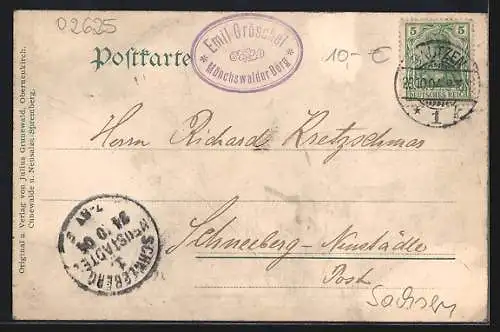 02625
Postkarte
Emil Gröschel
Mönchswalder Berg
10,- €
5 5
DEUTSCHES REICH
1
Original u. Verlag von Julius Grunewald, Oberneukirch,
Cunewalde u. Neusalza Spremberg.
Herrn Richard Kretzschmar
Schneeberg-Neustädte
Post
Sachsen
SCHNEEBERG-
NEUSTÄDTEL
1
24 10 04
7-8V